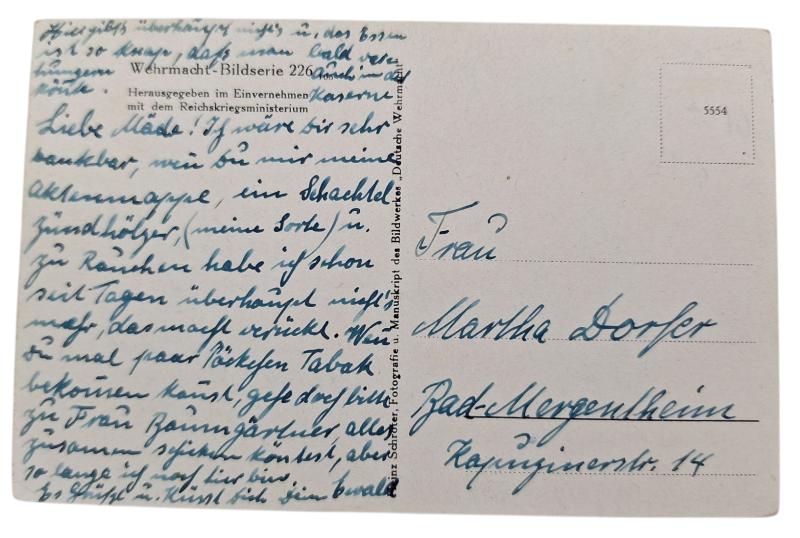 Hier gibts überhaupt nicht's u. das Essen
ist so knap, daß man bald ver-
hungern
könte.
auch in der
Kaserne
Wehrmacht-Bildserie 226
Herausgegeben im Einvernehmen
mit dem Reichskriegsministerium
Liebe Mäde! Ich wäre dir sehr
dankbar, wen du mir meine
Aktenmappe, ein Schachtel
Zündhölzer, (meine Sorte) u.
zu Rauchen habe ich schon
seit Tagen überhaupt nicht's
mehr, das macht verückt. Wen
du mal paar Päckchen Tabak
bekomen kanst, gehe doch bitte
zu Frau Baumgärtner, alles
zusamen schicken köntest, aber
so lange ich noch hier bin.
Es Grüßt u. Küsst dich Dein Ewald
Heinz Schröter, Fotografie u. Manuskript des Bildwerkes „Deutsche Wehrmacht"
5554
Frau
Martha Dorfer
Bad-Mergentheim
Kapuzinerstr. 14